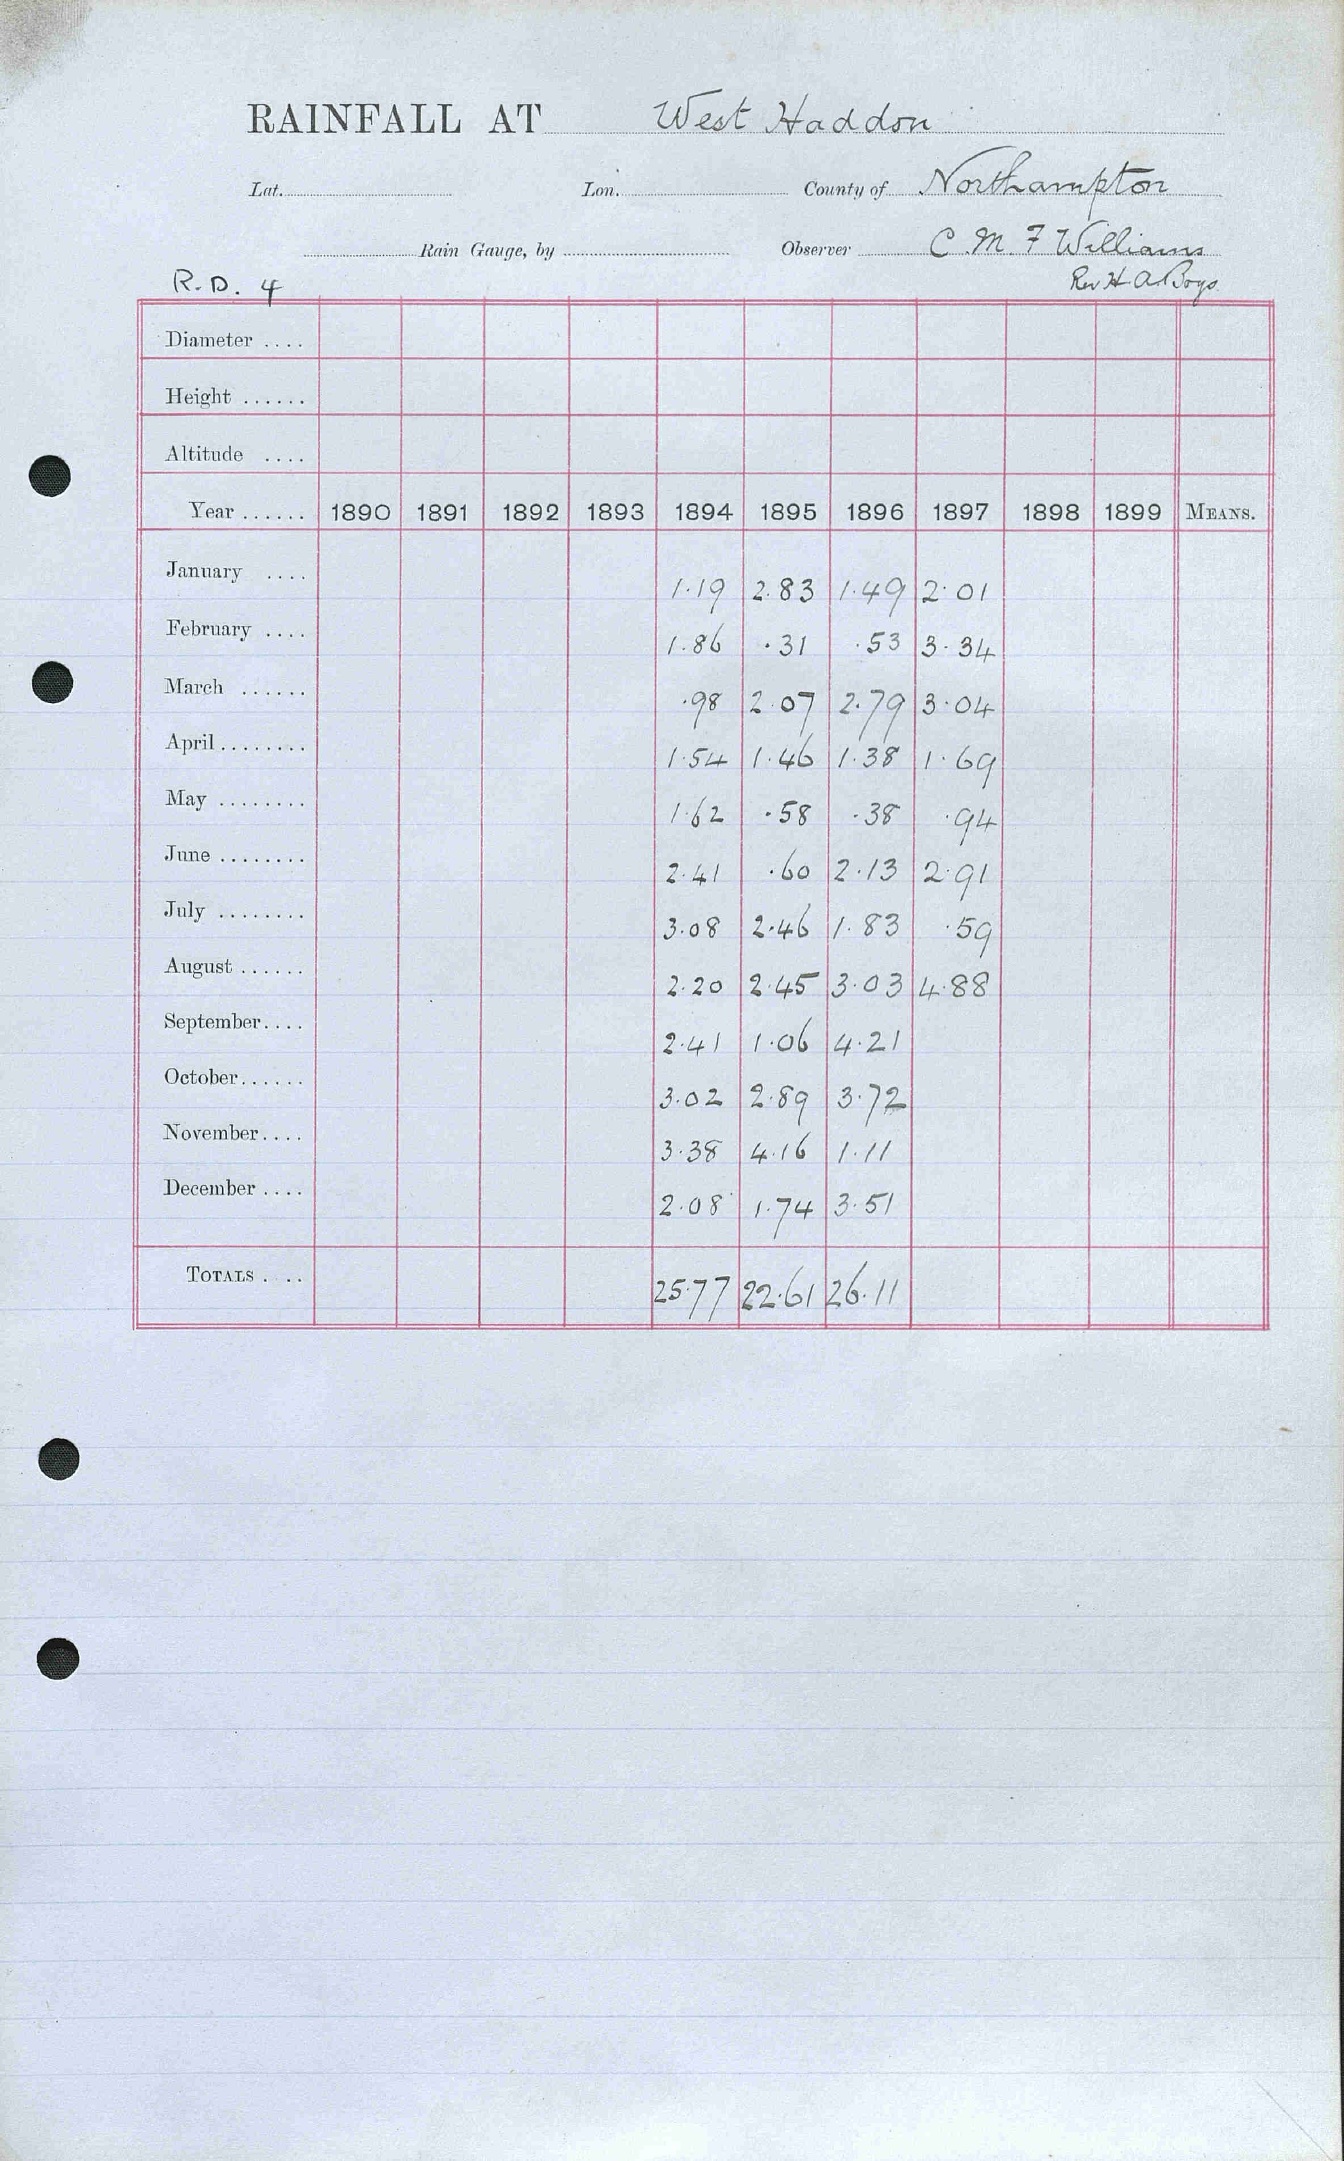 RAINFALL AT West Haddon
Lat. Lon. County of Northampton
Rain Gauge, by Observer C. M. F Williams
R.D. 4 Rev H. A. Boys
Diameter ....
Height ......
Altitude ....
Year ...... 1890 1891 1892 1893 1894 1895 1896 1897 1898 1899 MEANS.
January .... 1.19 2.83 1.49 2.01
February .... 1.86 .31 .53 3.34
March ...... .98 2.07 2.79 3.04
April ........ 1.54 1.46 1.38 1.69
May ........ 1.62 .58 .38 .94
June ........ 2.41 .60 2.13 2.91
July ........ 3.08 2.46 1.83 .59
August ...... 2.20 2.45 3.03 4.88
September.... 2.41 1.06 4.21
October...... 3.02 2.89 3.72
November.... 3.38 4.16 1.11
December .... 2.08 1.74 3.51
TOTALS . .. 25.77 22.61 26.11